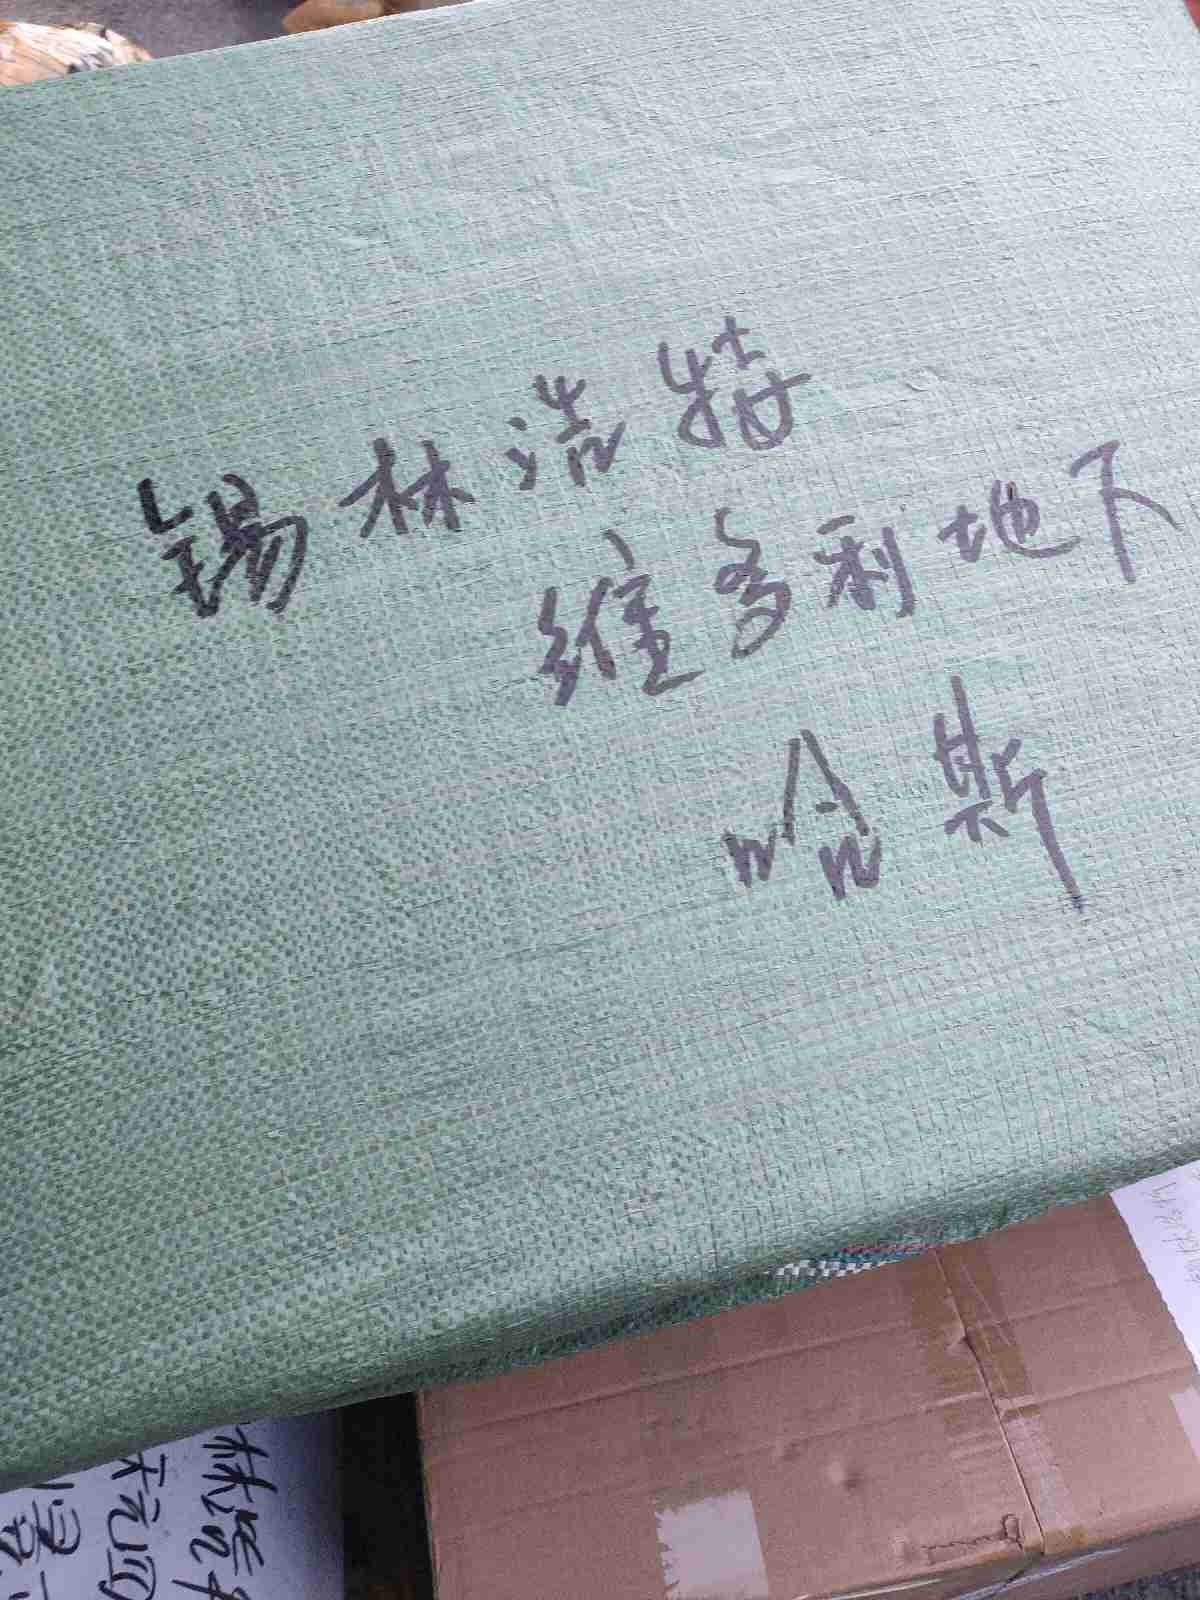 锡林浩特
维多利地下
哈斯